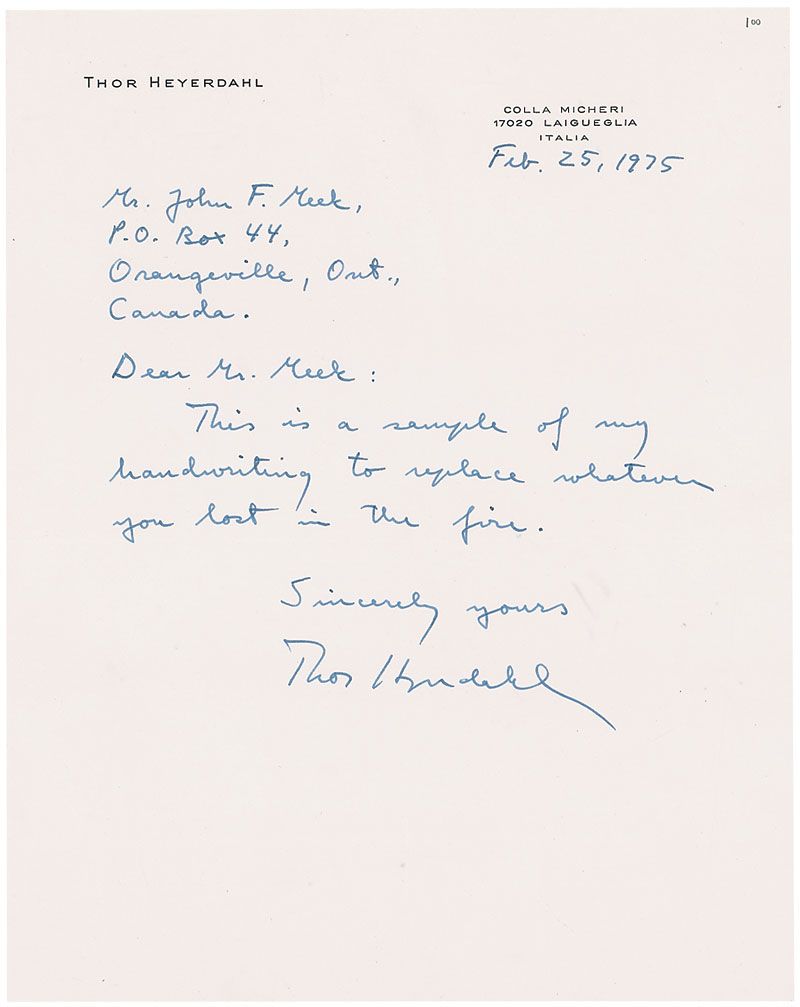 1 00
THOR HEYERDAHL
COLLA MICHERI
17020 LAIGUEGLIA
ITALIA
Feb. 25, 1975
Mr. John F. Meek,
P.O. Box 44,
Orangeville, Ont.,
Canada.
Dear Mr. Meek :
This is a sample of my
handwriting to replace whatever
you lost in the fire.
Sincerely yours
Thor Heyerdahl